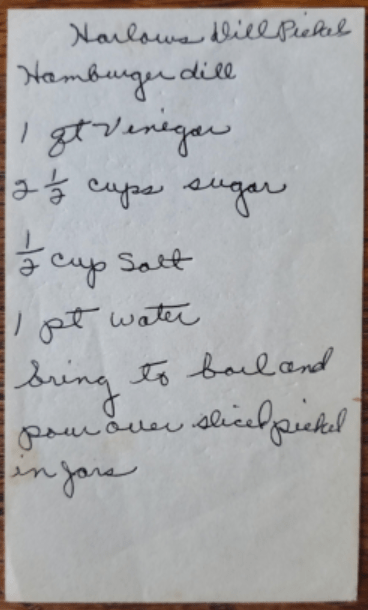 Harlows Dill Pickel
Hamburger dill
1 qt Vinegar
2 1/2 cups sugar
1/2 cup Salt
1 pt water
bring to boil and
pour over sliced pickel
in jars